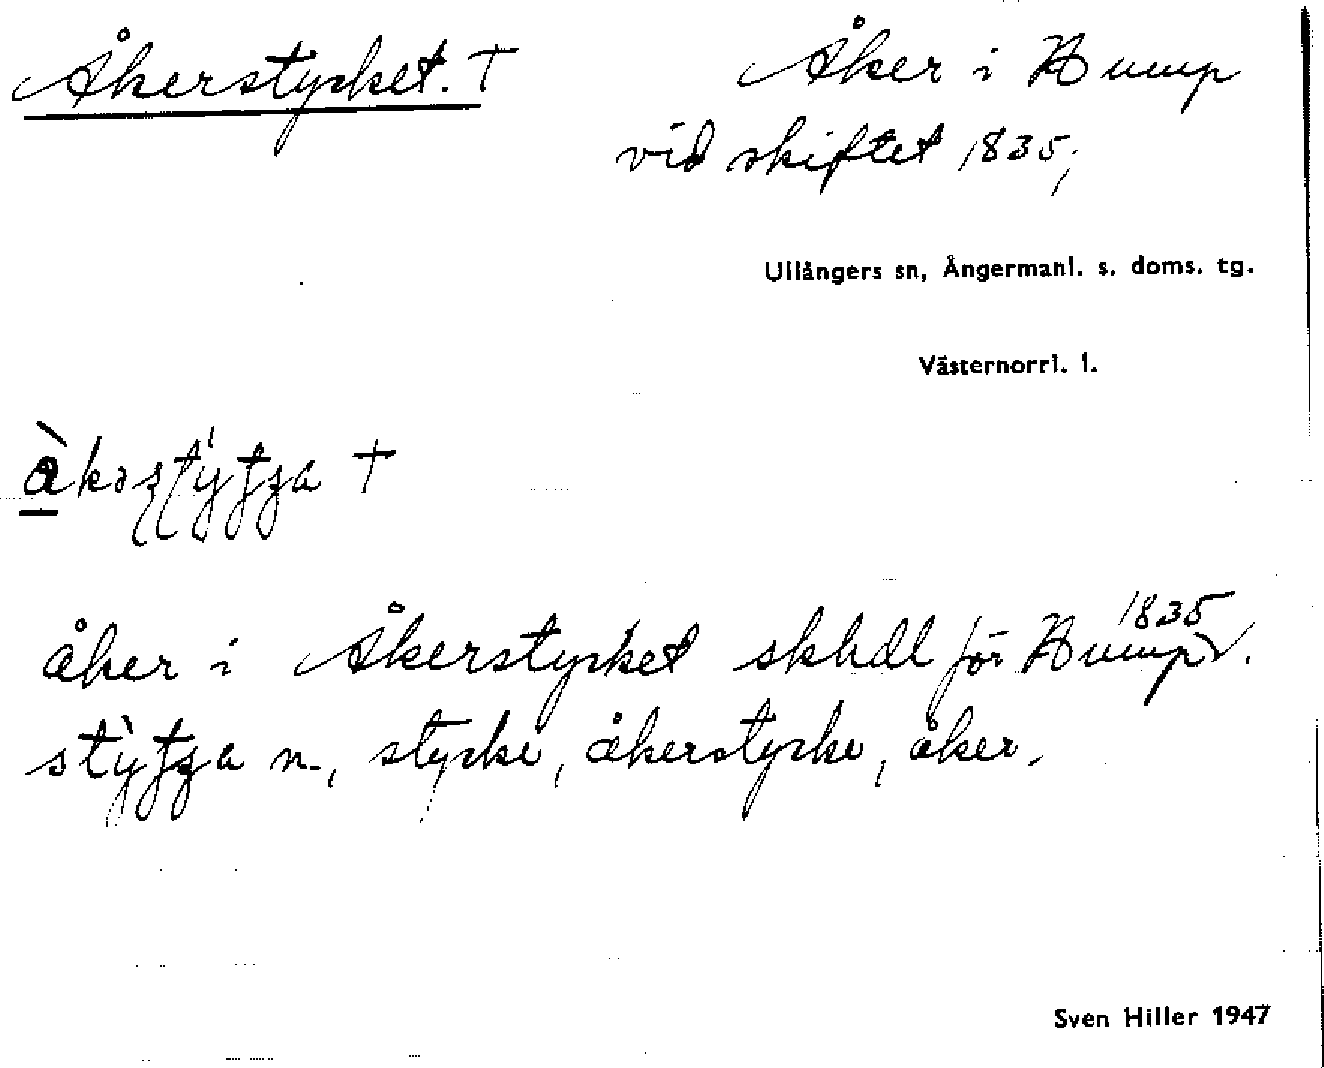 Åkerstycket. †
Åker i Hump
vid skiftet 1835;
Ullångers sn, Ångermanl. s. doms. tg.
Västernorrl. l.
†
åker i Åkerstycket skhdl för Hump 1835.
n., stycke, åkerstycke, åker.
Sven Hiller 1947